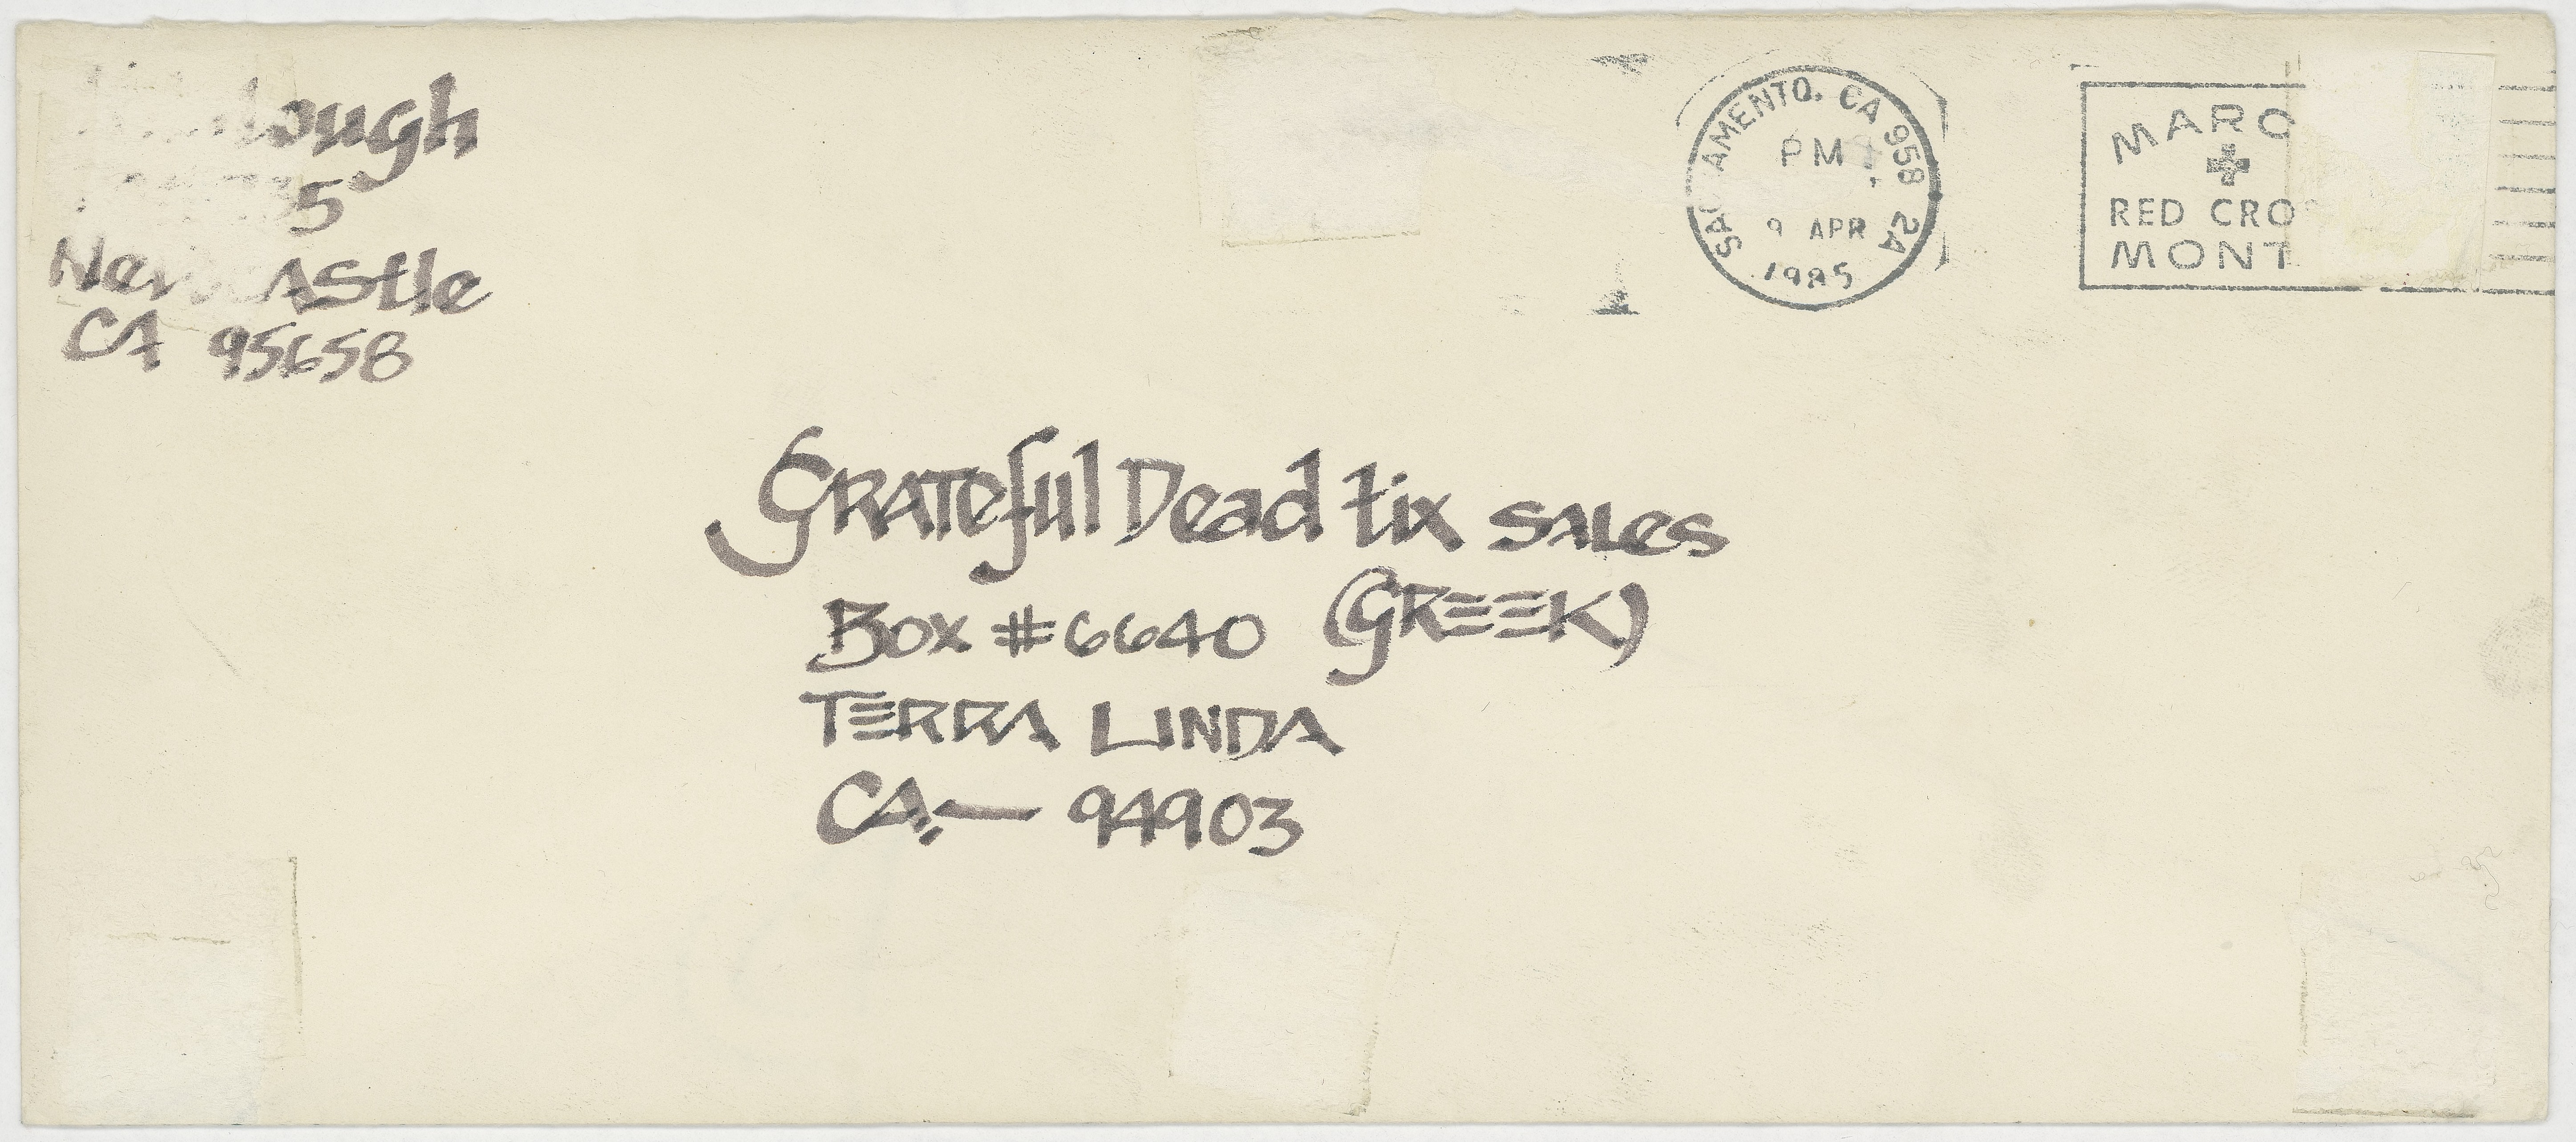 5
CA 95658
SACRAMENTO, CA 958 2A
PM
9 APR
1985
MARC
RED CRO
MONT
Grateful Dead tix sales
Box #6640 (GREEK)
TERRA LINDA
CA. — 94903